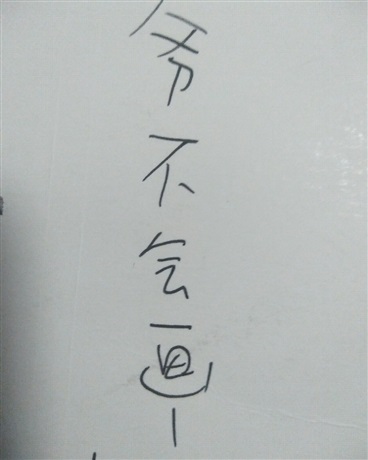 务不会画